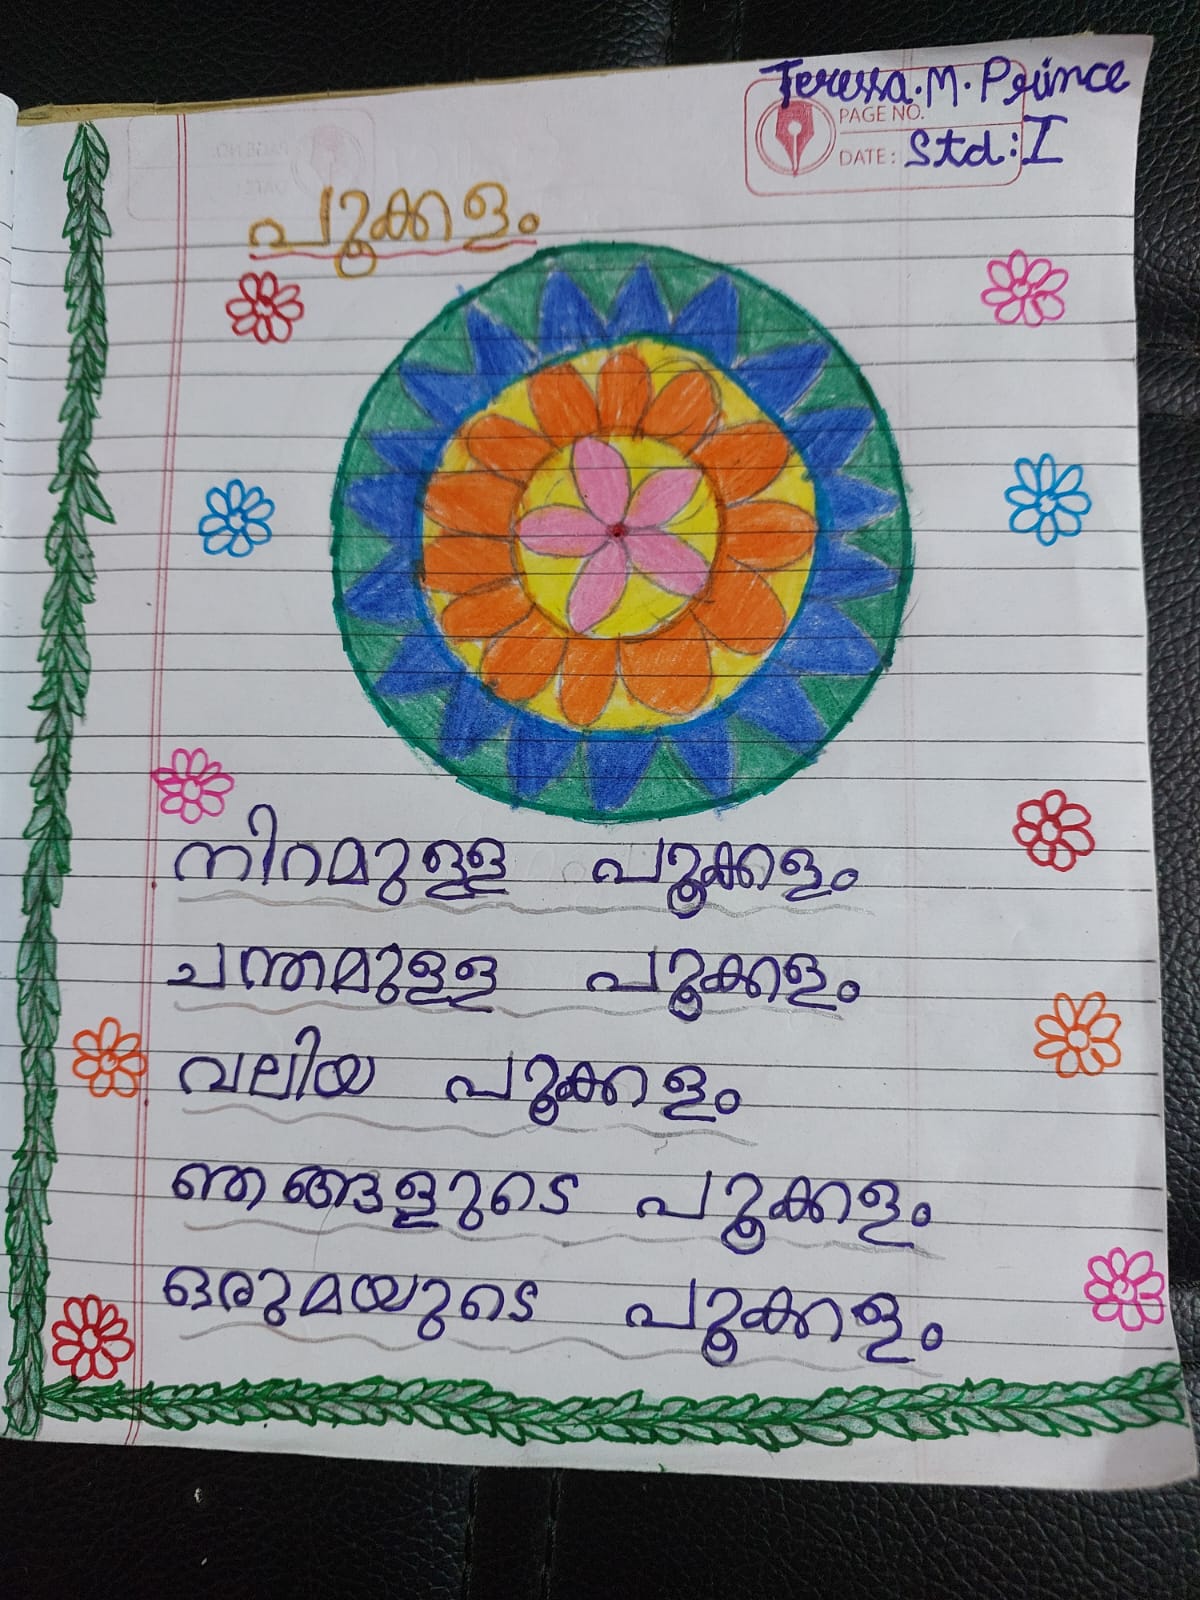 Teressa.M.Prince
PAGE NO.
DATE: Std:I
പൂക്കളം
നിറമുള്ള പൂക്കളം
ചന്തമുള്ള പൂക്കളം
വലിയ പൂക്കളം
ഞങ്ങളുടെ പൂക്കളം
ഒരുമയുടെ പൂക്കളം